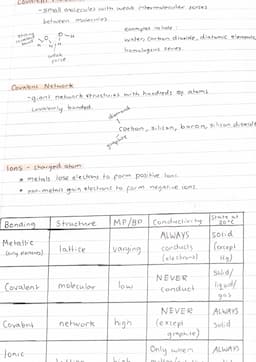 Covalent
-small molecules with weak intermolecular forces
between molecules.
strong
covalent
bond
O
H
H
O
H
H
weak
force
examples include:
water, carbon dioxide, diatomic elements,
homologous series.
Covalent Network
-giant network structures with hundreds of atoms
covalently bonded.
diamond
carbon, silicon, boron, silicon dioxide
graphite
Ions - charged atom
• metals lose electrons to form positive ions.
• non-metals gain electrons to form negative ions.
Bonding Structure MP/BP Conductivity State at 20°C
Metallic (only elements) lattice varying ALWAYS conducts (electrons) solid (except Hg)
Covalent molecular low NEVER conduct solid/ liquid/ gas
Covalent network high NEVER (except graphite) ALWAYS solid
Ionic lattice high Only when ALWAYS